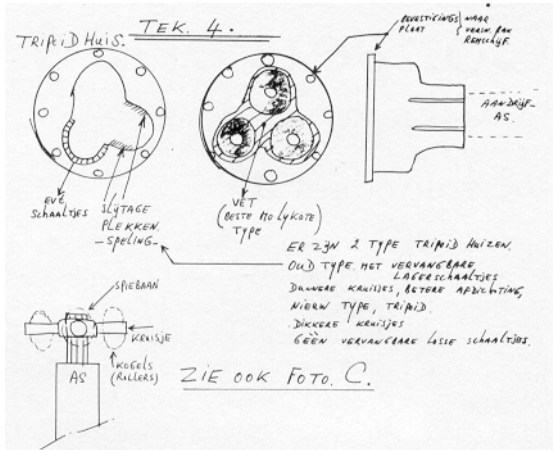 TEK. 4.
TRIPOID HUIS.
BEVESTIGINGS
PLAAT
NAAR
VERW. BAN
REMSCHIJF.
AANDRIJF-
AS.
EVT.
SCHAALTJES
SLIJTAGE
PLEKKEN.
-SPELING-
VET
(BESTE MOLYKOTE)
TYPE
ER ZIJN 2 TYPE TRIPOID HUIZEN.
OUD TYPE. MET VERVANGBARE
LAGERSCHAALTJES
DUNNERE KRUISJES, BETERE AFDICHTING,
NIEUW TYPE, TRIPOID.
DIKKERE KRUISJES
GEEN VERVANGBARE LOSSE SCHAALTJES.
SPIEBAAN
KRUISJE
KOGELS
(ROLLERS)
AS
ZIE OOK FOTO. C.